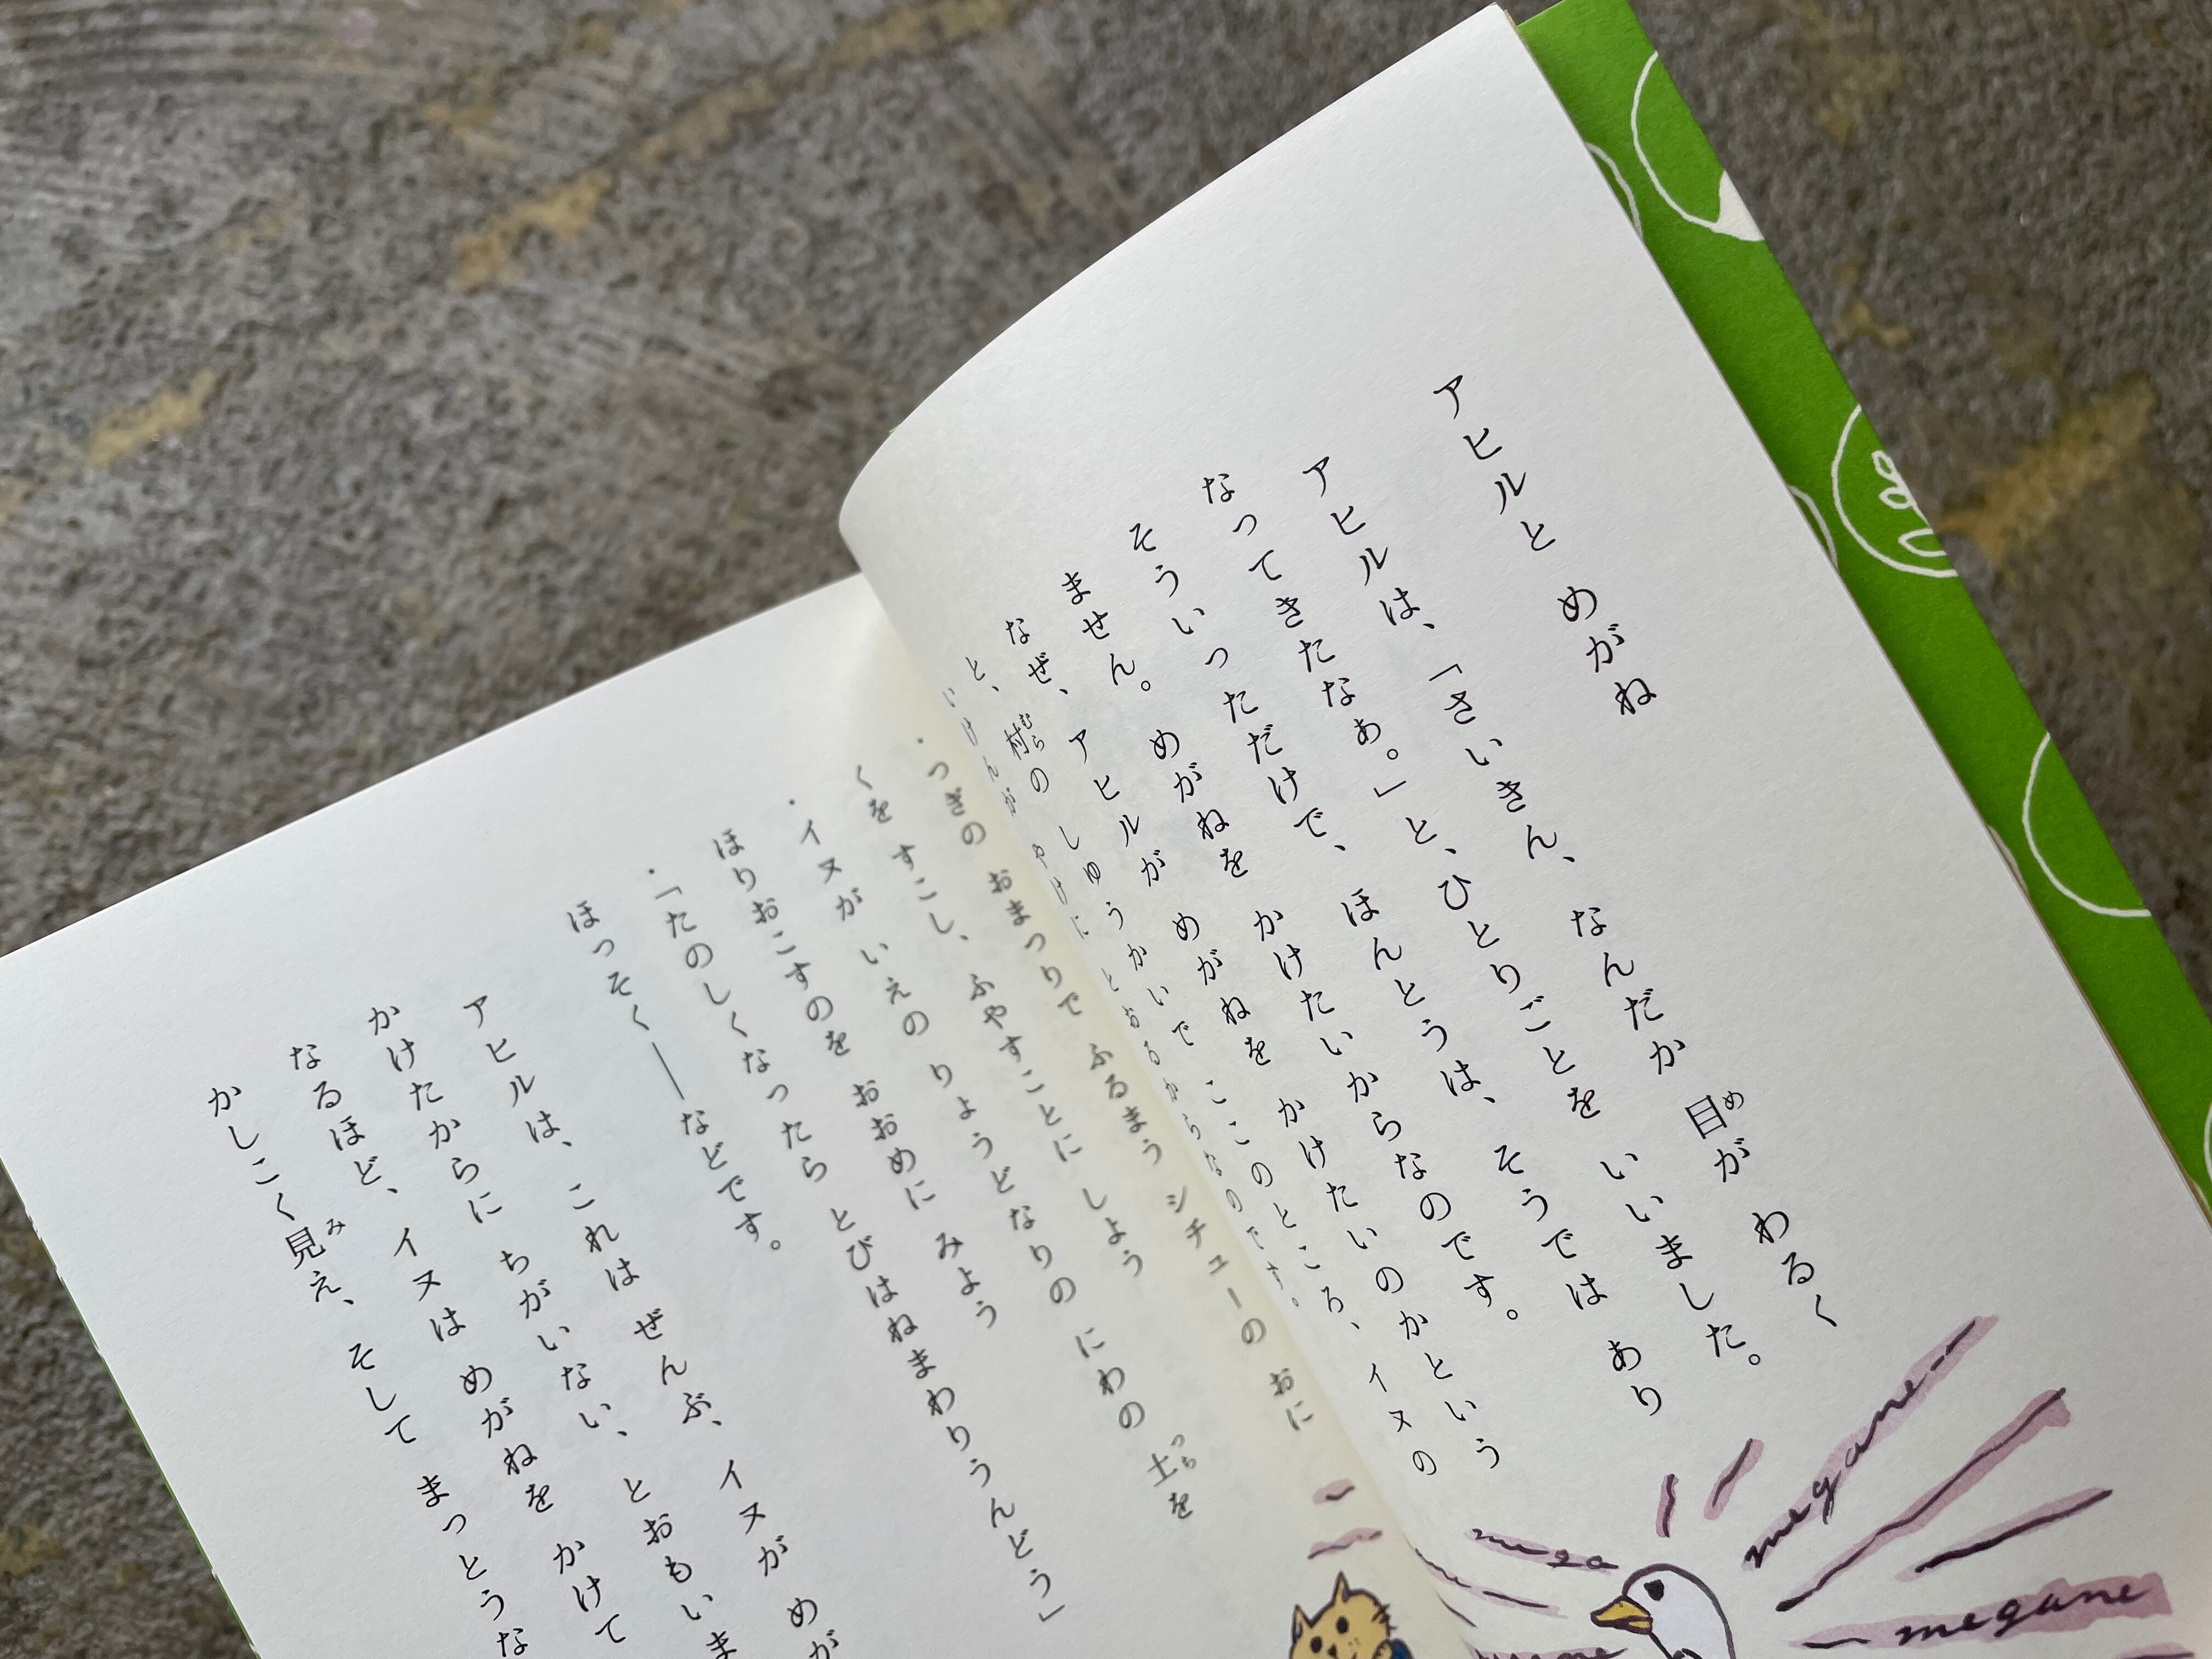 アヒルと めがね
アヒルは、「さいきん、なんだか 目が わるく
なってきたなあ。」と、ひとりごとを いいました。
そういっただけで、ほんとうは、そうでは あり
ません。めがねを かけたいからなのです。
なぜ、アヒルが めがねを かけたいのかという
と、村の しゅうかいで ここのところ、イヌの
いけんが やけに とおるからなのです。
・つぎの おまつりで ふるまう シチューの おに
くを すこし、ふやすことに しよう
・イヌが いえの りょうどなりの にわの 土を
ほりおこすのを おおめに みよう
・「たのしくなったら とびはねまわりうんどう」
ほっそく――などです。
アヒルは、これは ぜんぶ、イヌが めが
かけたからに ちがいない、とおもいま
なるほど、イヌは めがねを かけて
かしこく見え、そして まっとうな
megane
mega
megane